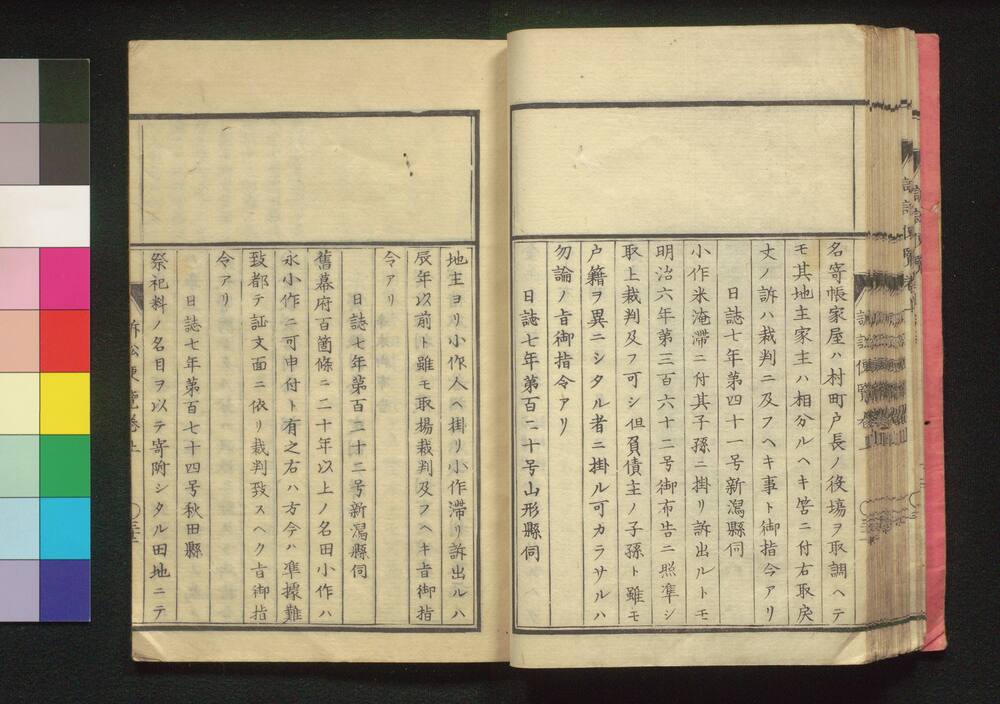 名寄帳家屋ハ村町戸長ノ役塲ヲ取調ヘテ
モ其地主家主ハ相分ルヘキ筈ニ付右取戻
丈ノ訴ハ裁判ニ及フヘキ事ト御指令アリ
日誌七年第四十一号新潟縣伺
小作米淹滯ニ付其子孫ニ掛リ訴出ルトモ
明治六年第三百六十二号御布告ニ照準シ
取上裁判及フ可シ但負債主ノ子孫ト雖モ
户籍ヲ異ニシタル者ニ掛ル可カラサルハ
勿論ノ旨御指令アリ
日誌七年第百二十号山形縣伺
地主ヨリ小作人ヘ掛リ小作滯リ訴出ルハ
辰年以前ト雖モ取揚裁判及フヘキ旨御指
令アリ
日誌七年第百二十二号新潟縣伺
舊幕府百箇條ニ二十年以上ノ名田小作ハ
永小作ニ可申付ト有之右ハ方今ハ準據難
致都テ証文面ニ依リ裁判致スヘク旨御指
令アリ
日誌七年第百七十四号秋田縣
祭祀料ノ名目ヲ以テ寄附シタル田地ニテ
訴訟便覽卷上